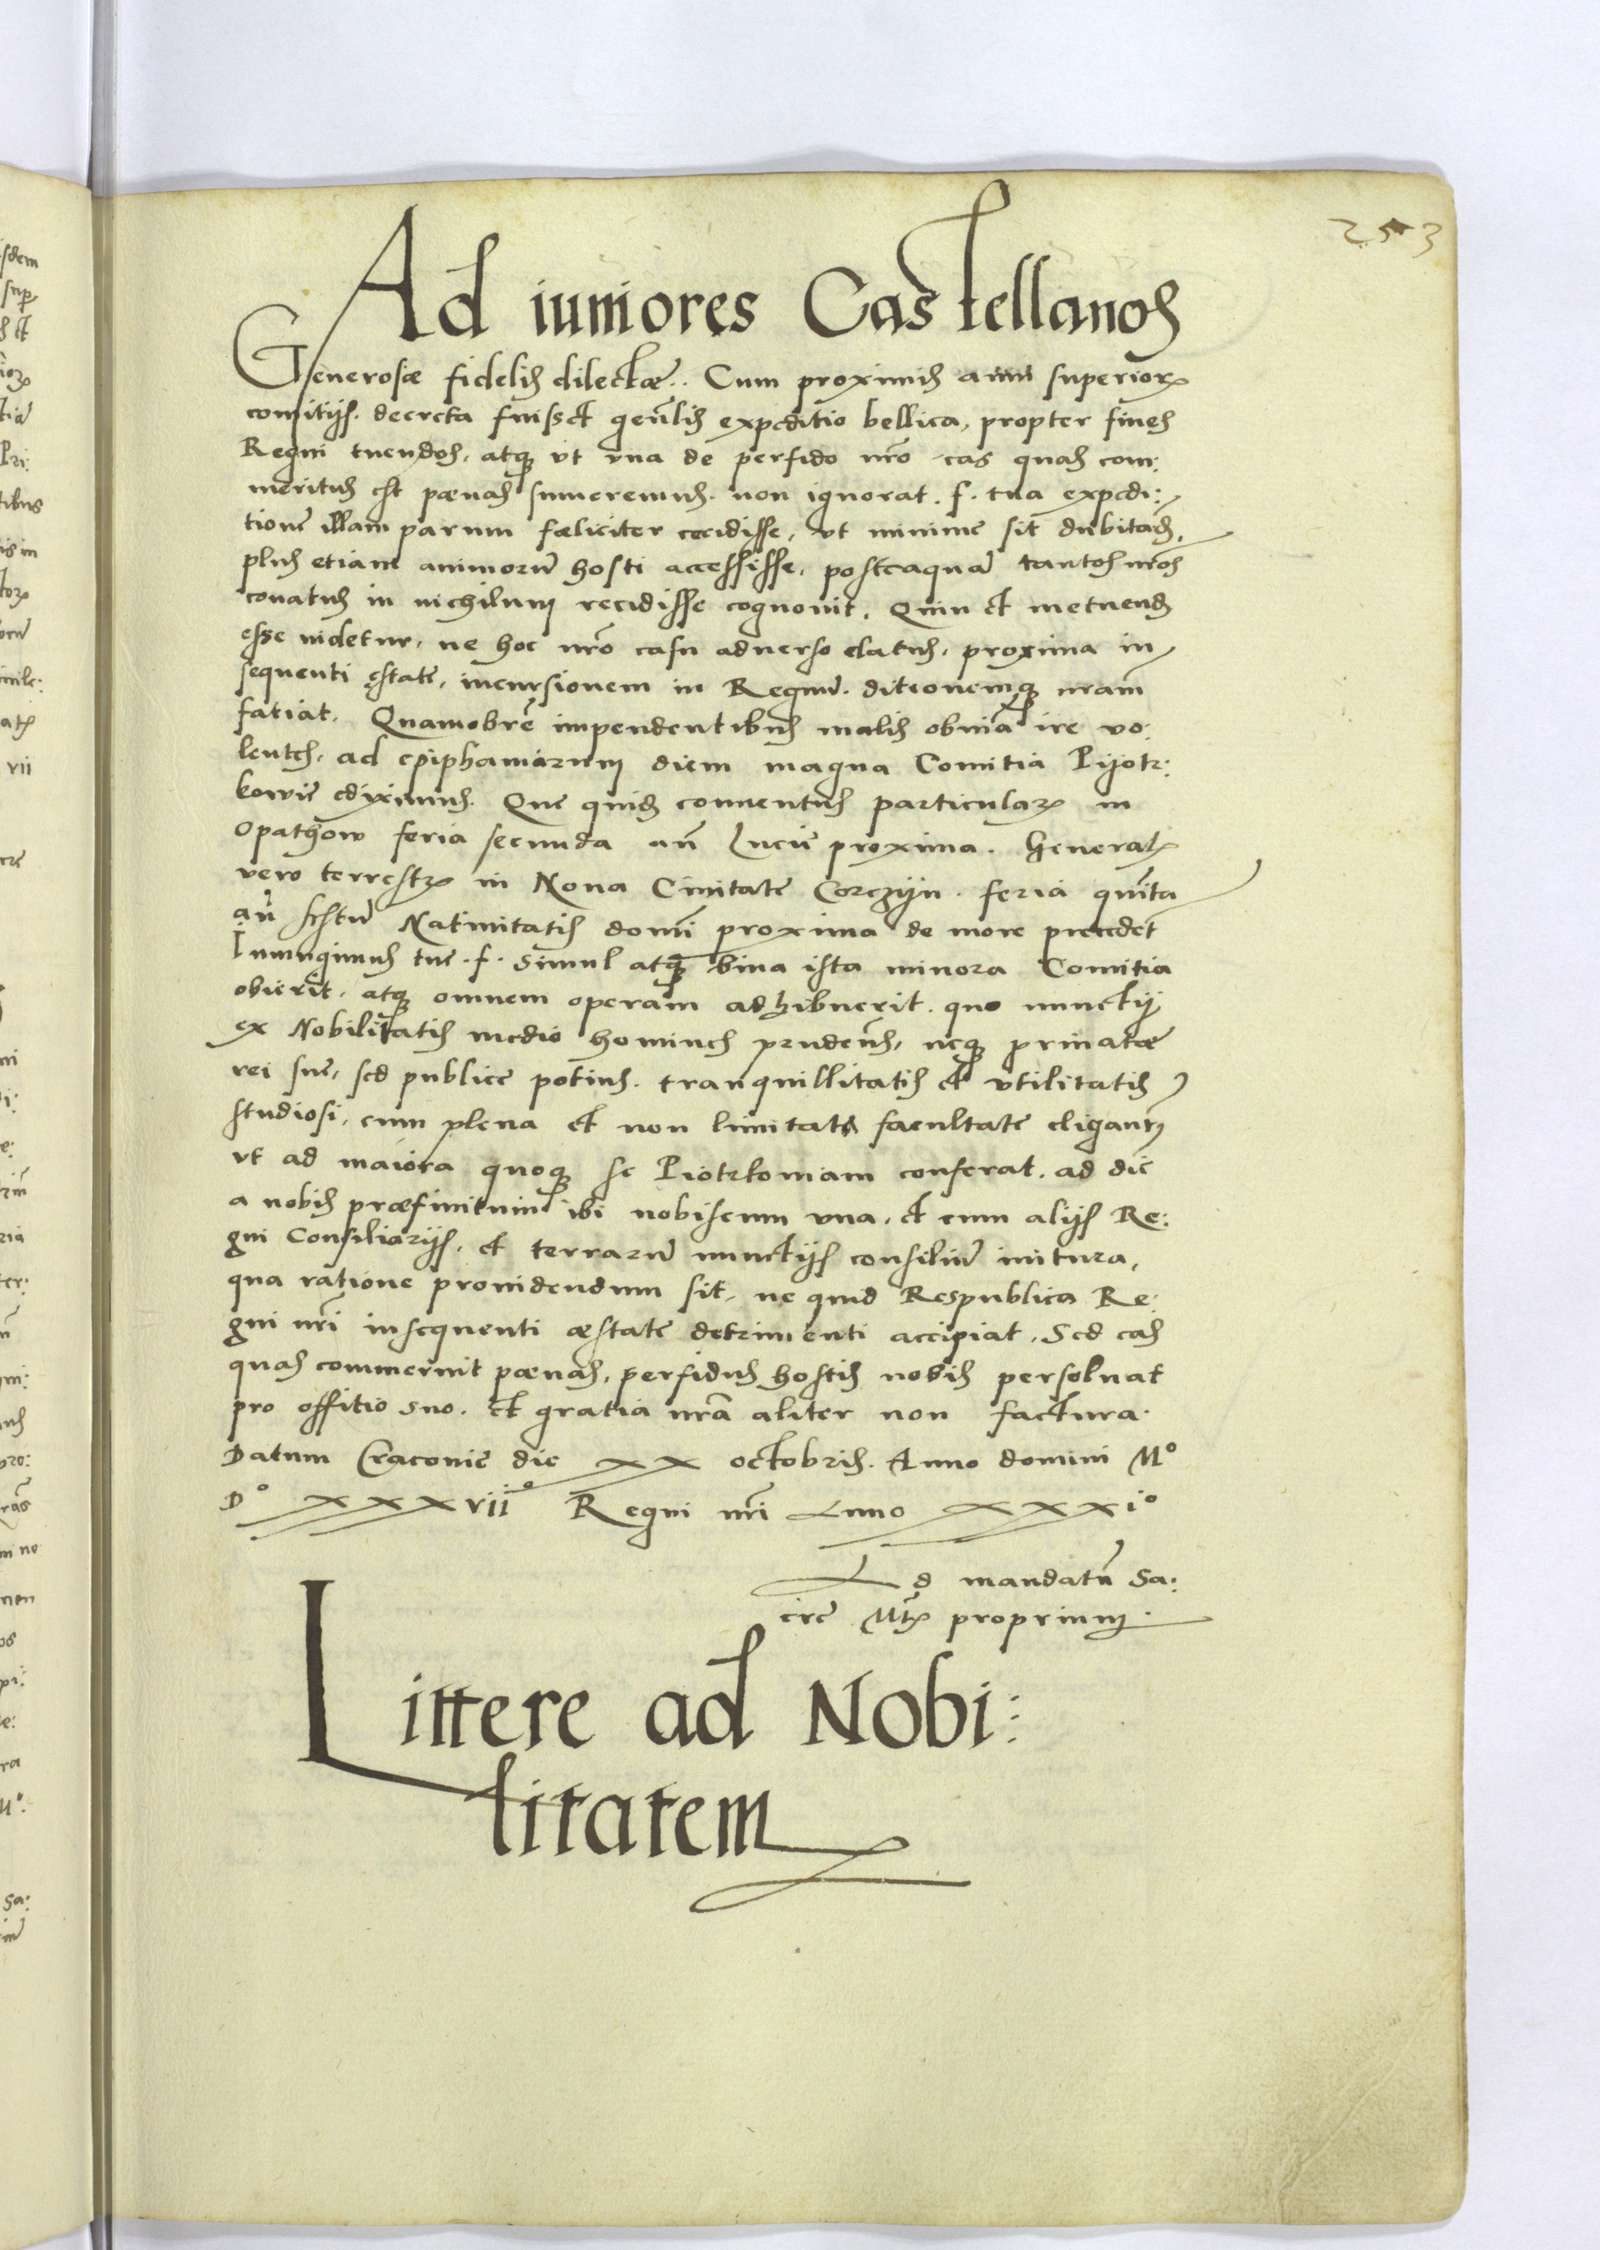 253
Ad iuniores Castellanos
Generosæ fidelis dilectæ. Cum proximis anni superioris
comitijs decreta fuisset gen̄lis expeditio bellica, propter fines
Regni tuendos, atq; vt vna de perfido nr̄o eas quas com:
meritus est pænas sumeremus. non ignorat. f. tua expedi:
tione illam parum fæliciter cecidisse, vt minime sit dubitad,
plus etiam animorū hosti accessisse, posteaquā tantos nr̄os
conatus in nichilum recidisse cognouit. Quin et metuend
esse uidetur, ne hoc nr̄o casu aduerso elatus, proxima in
sequenti ęstate, incursionem in Regnū ditionemq; nram̄
fatiat. Quamobrē impendentibus malis obuiā ire vo:
lentes, ad epiphaniarum diem magna Comitia Pijotr:
kowie ediximus. Que quid conuentus particularis in
Opathow feria secunda an̄ Lucie proxima. Generalis
vero terrestris in Noua Ciuitate Corczijn feria quīta
an̄ festū Natiuitatis domī proxima de more precedet
Iniungimus tue . f . simul atq; bina ista minora Comitia
obierit, atq; omnem operam adhibuerit. quo nunctij
ex Nobilitatis medio homines prudēts, neq; priuatæ
rei sue, sed publice potius tranquillitatis et vtilitatis
studiosi, cum plena et non limitata facultate eligantur
vt ad maiora quoq; se Piotrkouiam conferat. ad diē
a nobis præfinitum ibi nobiscum vna, et cum alijs Re:
gni Consiliarijs, et terrarū nunctijs consiliū initura,
qua ratione prouidendum sit, ne quid Respublica Re:
gni nr̄i insequenti æstate detrimenti accipiat. Sed eas
quas commeruit pænas, perfidus hostis nobis persoluat
pro offitio suo. et gratia nrā aliter non factura.
Datum Cracouie die XX octobris. Anno domini Mº
Dº XXXVIIº Regni nr̄i Anno XXXIº
Ad mandatū Sa:
cre Mtis proprium.
Littere ad Nobi:
litatem